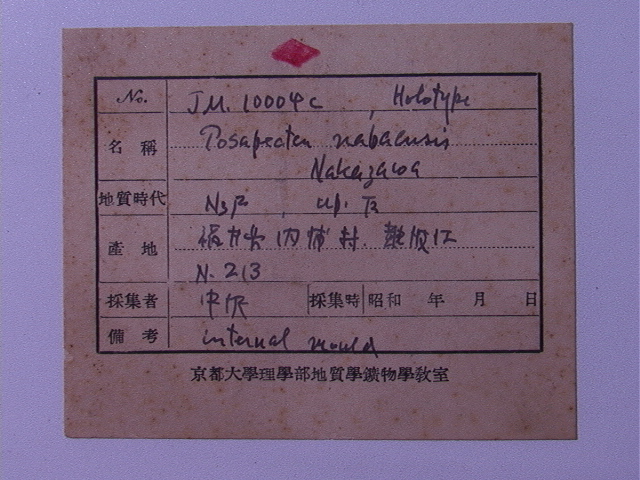 No. JM. 10004c, Holotype
名稱 Posapecten nabaensis
Nakazawa
地質時代 N3F, up. Tr
產地 内浦村. 難波江
N. 213
採集者 中沢 採集時 昭和 年 月 日
備考 internal mould
京都大學理學部地質學鑛物學教室